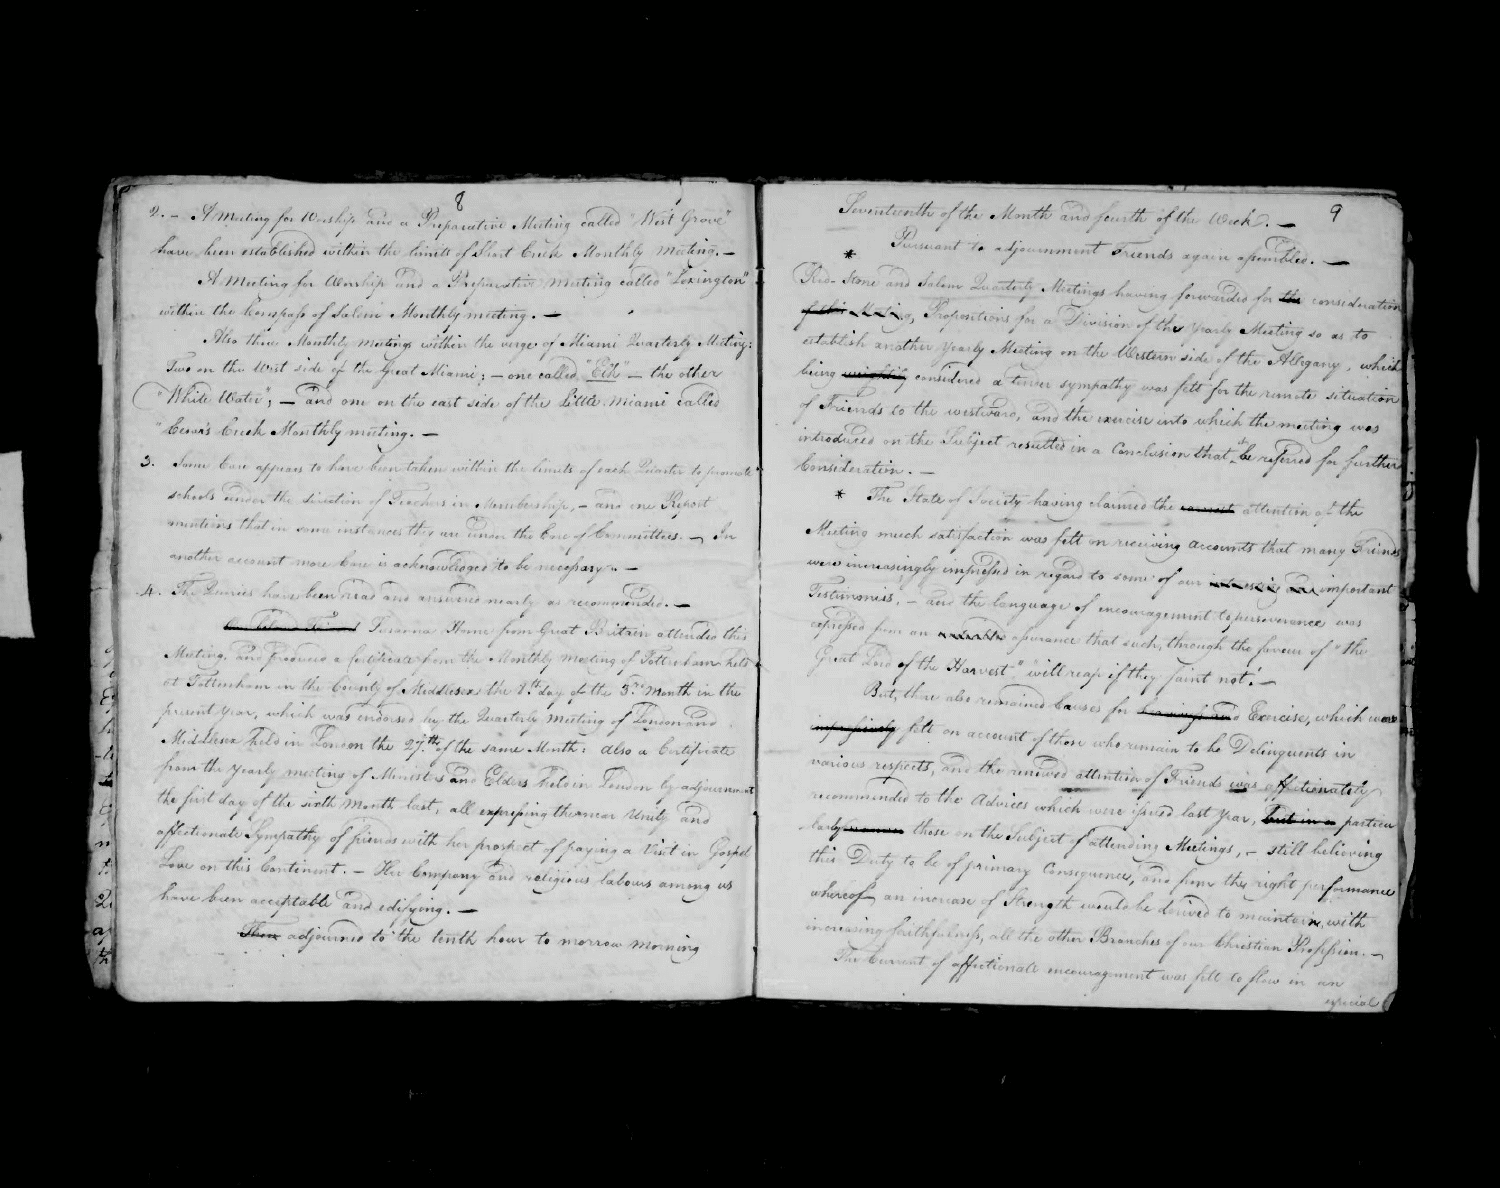 8
2. – A Meeting for Worship and a Preparative Meeting called "West Grove"
have been established within the limits of Short Creek Monthly Meeting. –
A Meeting for Worship and a Preparative meeting called "Lexington"
within the Compass of Salem Monthly meeting. –
Also three Monthly meetings within the verge of Miami Quarterly Meeting:
Two on the West side of the Great Miami; – one called "Elk" – the other
"White Water"; – and one on the east side of the Little Miami called
"Cesar's Creek Monthly meeting. –
3. Some Care appears to have been taken within the limits of each Quarter to promote
schools under the direction of Teachers in Membership, – and one Report
mentions that in some instances they are under the Care of Committees. – In
another account more Care is acknowledged to be necessary. –
4. The Queries have been read and answered nearly as recommended. –
Our Friend Susanna Horne from Great Britain attended this
Meeting, and produced a Certificate from the Monthly Meeting of Tottenham held
at Tottenham in the County of Middlesex the 8th. day of the 3rd. Month in the
present year, which was endorsed by the Quarterly Meeting of London and
Middlesex held in London the 27.th of the same Month: also a Certificate
from the Yearly meeting of Ministers and Elders held in London by adjournment
the first day of the sixth Month last, all expressing their near Unity and
affectionate Sympathy of friends with her prospect of paying a Visit in Gospel
Love on this Continent. – Her Company and religious labours among us
have been acceptable and edifying. –
Then adjourned to the tenth hour to morrow morning
9
Seventeenth of the Month and fourth of the Week. –
Pursuant to adjournment Friends again assembled. –
* Red-Stone and Salem Quarterly Meetings having forwarded for the consideration
of this Meeting, Propositions for a Division of the Yearly Meeting so as to
establish another Yearly Meeting on the Western side of the Allegany, which
being weightily considered a tender sympathy was felt for the remote situation
of Friends to the westward, and the exercise into which the meeting was
introduced on the Subject resulted in a Conclusion that it be referred for further
Consideration. –
* The State of Society having claimed the attention of the
Meeting much satisfaction was felt on receiving accounts that many Friends
were increasingly impressed in regard to some of our interesting and important
Testimonies, – and the language of encouragement to perseverance was
expressed from an assurance that such, through the favour of "the
Great Lord of the Harvest" "will reap if they faint not". –
But, there also remained Causes for and Exercise, which was
impressively felt on account of those who remain to be Delinquents in
various respects, and the renewed attention of Friends was affectionately
recommended to the Advices which were issued last year, but in a particu
larly those on the Subject of attending Meetings, – still believing
this Duty to be of primary Consequence, and from the right performance
whereof an increase of Strength would be derived to maintain, with
increasing faithfulness, all the other Branches of our Christian Profession. –
The Current of affectionate encouragement was felt to flow in an
especial